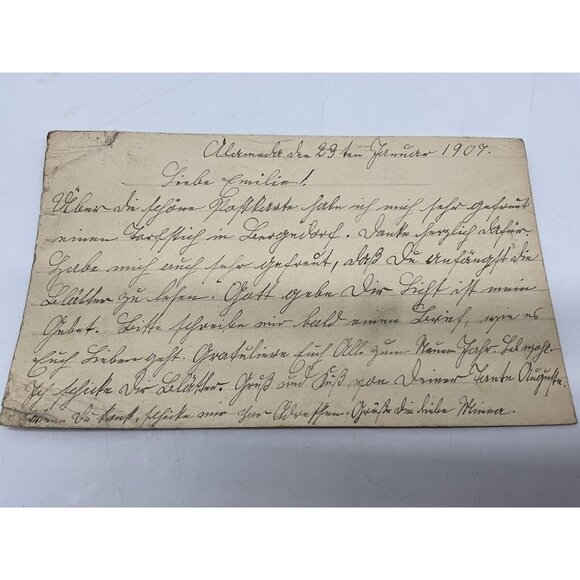 Alameda den 23ten Januar 1907.
Liebe Emilie!
Über die schöne Postkarte habe ich mich sehr gefreut
einen Torfstich in Bergedorf. Danke herzlich dafür.
Habe mich auch sehr gefreut, daß Du anfängst die
Blätter zu lesen. Gott gebe Dir Licht ist mein
Gebet. Bitte schreibe mir bald einen Brief, wie es
Euch Lieben geht. Gratuliere Euch Alle zum Neuen Jahr. Leb wohl.
Ich schicke Dir Blätter. Gruß und Kuß von Deiner Tante Auguste.
Wenn Du kannst, schicke mir paar Adressen. Grüße die liebe Minna.